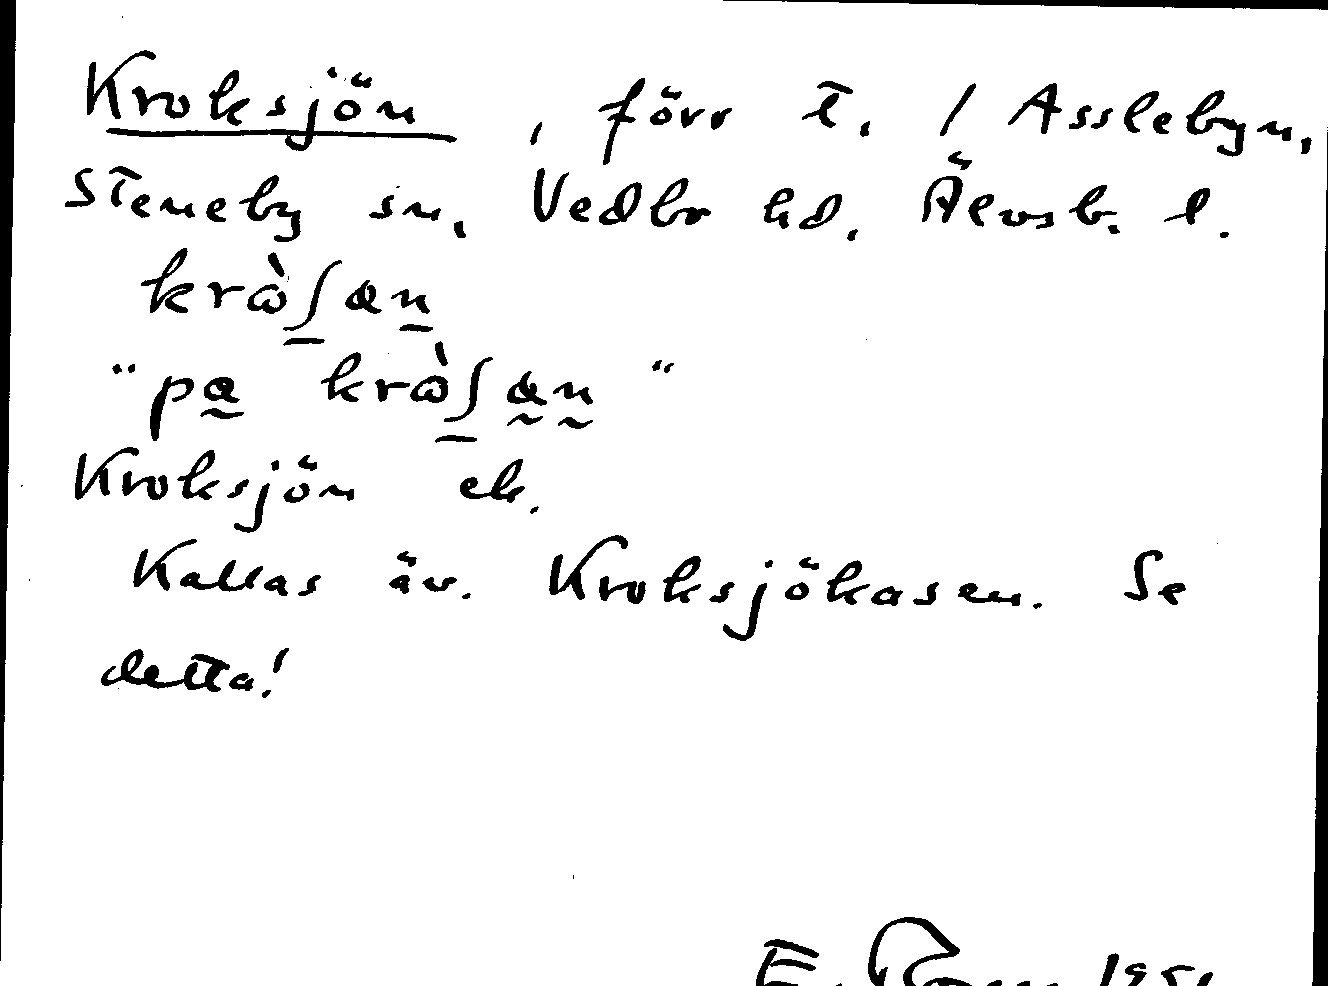 Kroksjön, förr t. / Asslebyn,
Steneby sn, Vedbo hd. Älvsb. l.
krὼʃan
"pa krὼʃan"
Kroksjön ek.
Kallas äv. Kroksjökasen. Se
detta!
E.